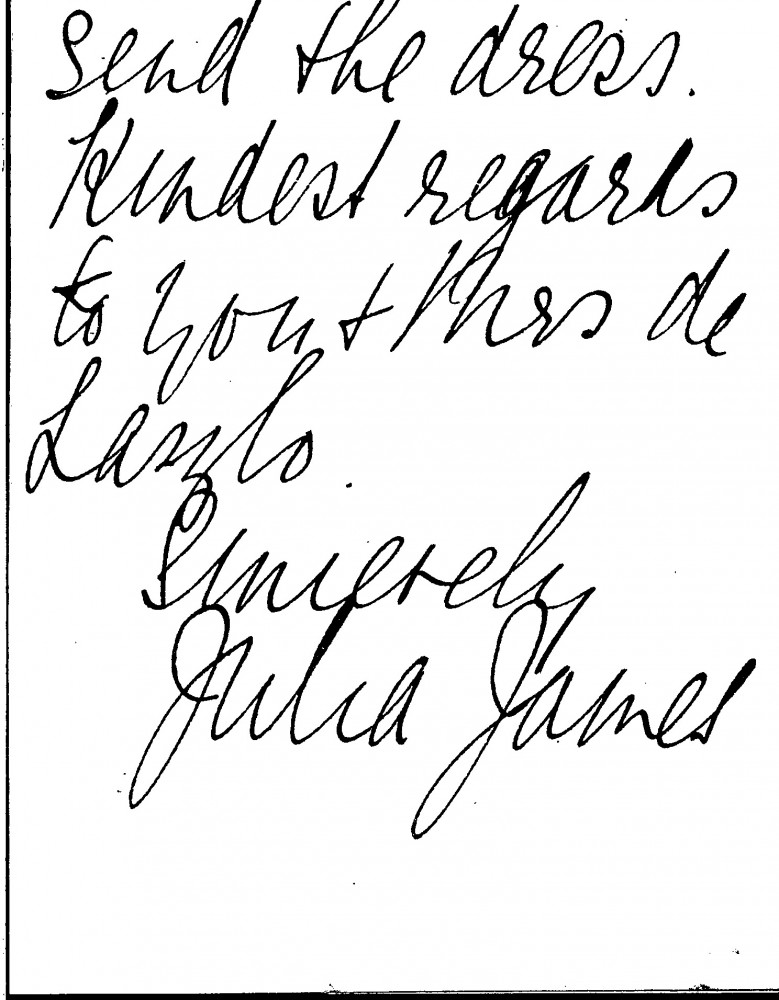 send the dress.
Kindest regards
to you + Mrs de
Laszlo.
Sincerely
Julia James